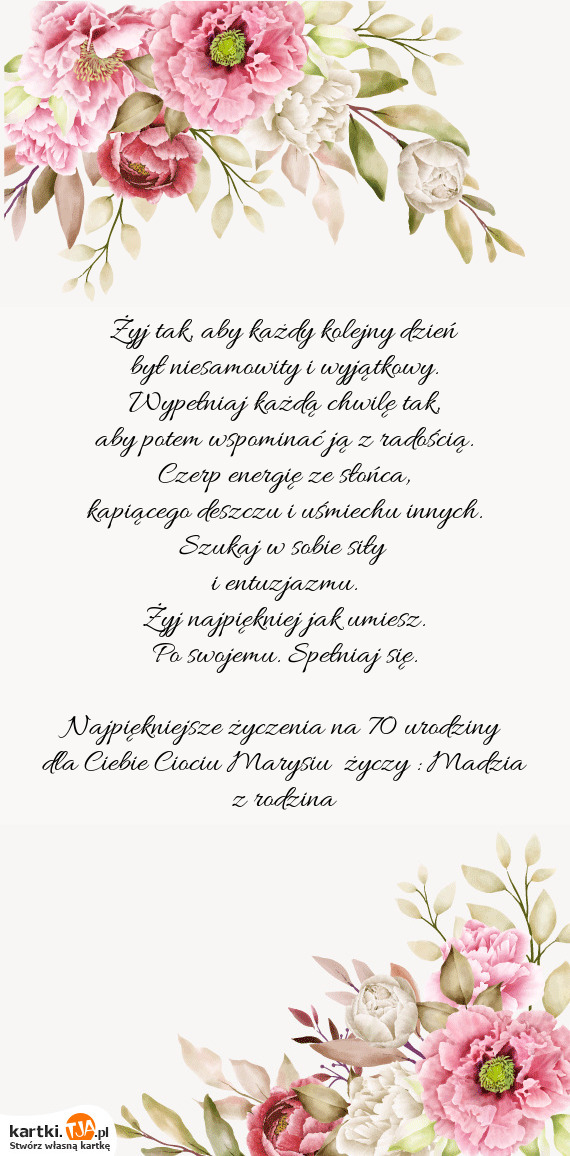 Żyj tak, aby każdy kolejny dzień
był niesamowity i wyjątkowy.
Wypełniaj każdą chwilę tak,
aby potem wspominać ją z radością.
Czerp energię ze słońca,
kapiącego deszczu i uśmiechu innych.
Szukaj w sobie siły
i entuzjazmu.
Żyj najpiękniej jak umiesz.
Po swojemu. Spełniaj się.
Najpiękniejsze życzenia na 70 urodziny
dla Ciebie Ciociu Marysiu życzy : Madzia
z rodzina
kartki.TJA.pl
Stwórz własną kartkę